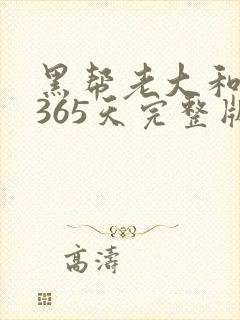 黑帮老大和
365天完整版
高涛